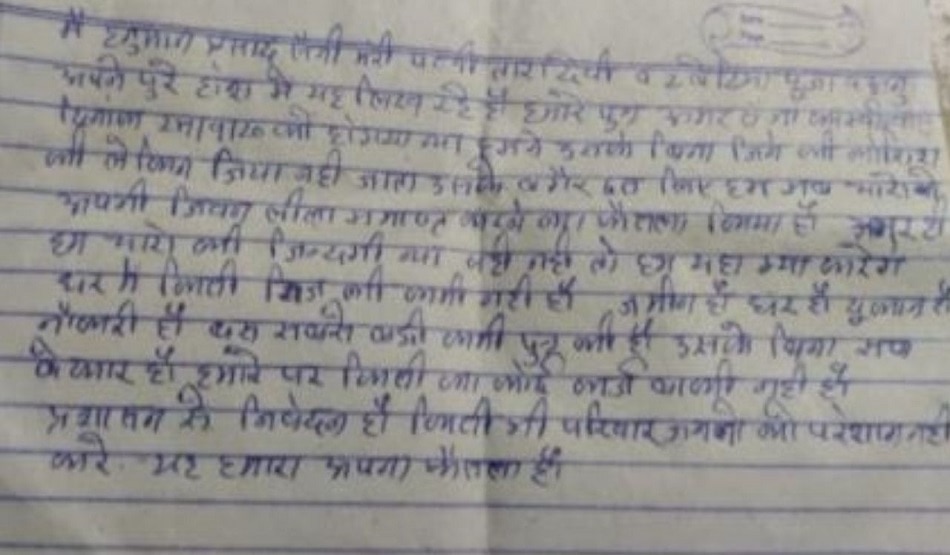 मैं हनुमान प्रसाद सैनी मेरी पत्नी तारा देवी व 2 बेटिया पूजा व अनु
अपने पुरे होश मे यह लिख रहे हैं हमारे पुत्र अमर
दिनांक को होगया था हमने उसके बिना जिने की कोशिश
की लेकिन जिया नही जाता उसके बगैर इस लिए हम सब चारो ने
अपनी जिवन लीला समाप्त करने का फैसला किया है अमर ही
हम चारो की जिन्दगी था वही नही तो हम यहा क्या करेंगे
घर मे किसी चिज की कमी नही है जमीन है घर है दुकान है
नौकरी है बस सबसे बडी कमी पुत्र की है उसके बिना सब
बेकार है हमारे पर किसी का कोई कर्जा बाकी नही है
प्रशासन से निवेदन है किसी भी परिवार जनो को परेशान नही
करे. यह हमारा अपना फैसला है।